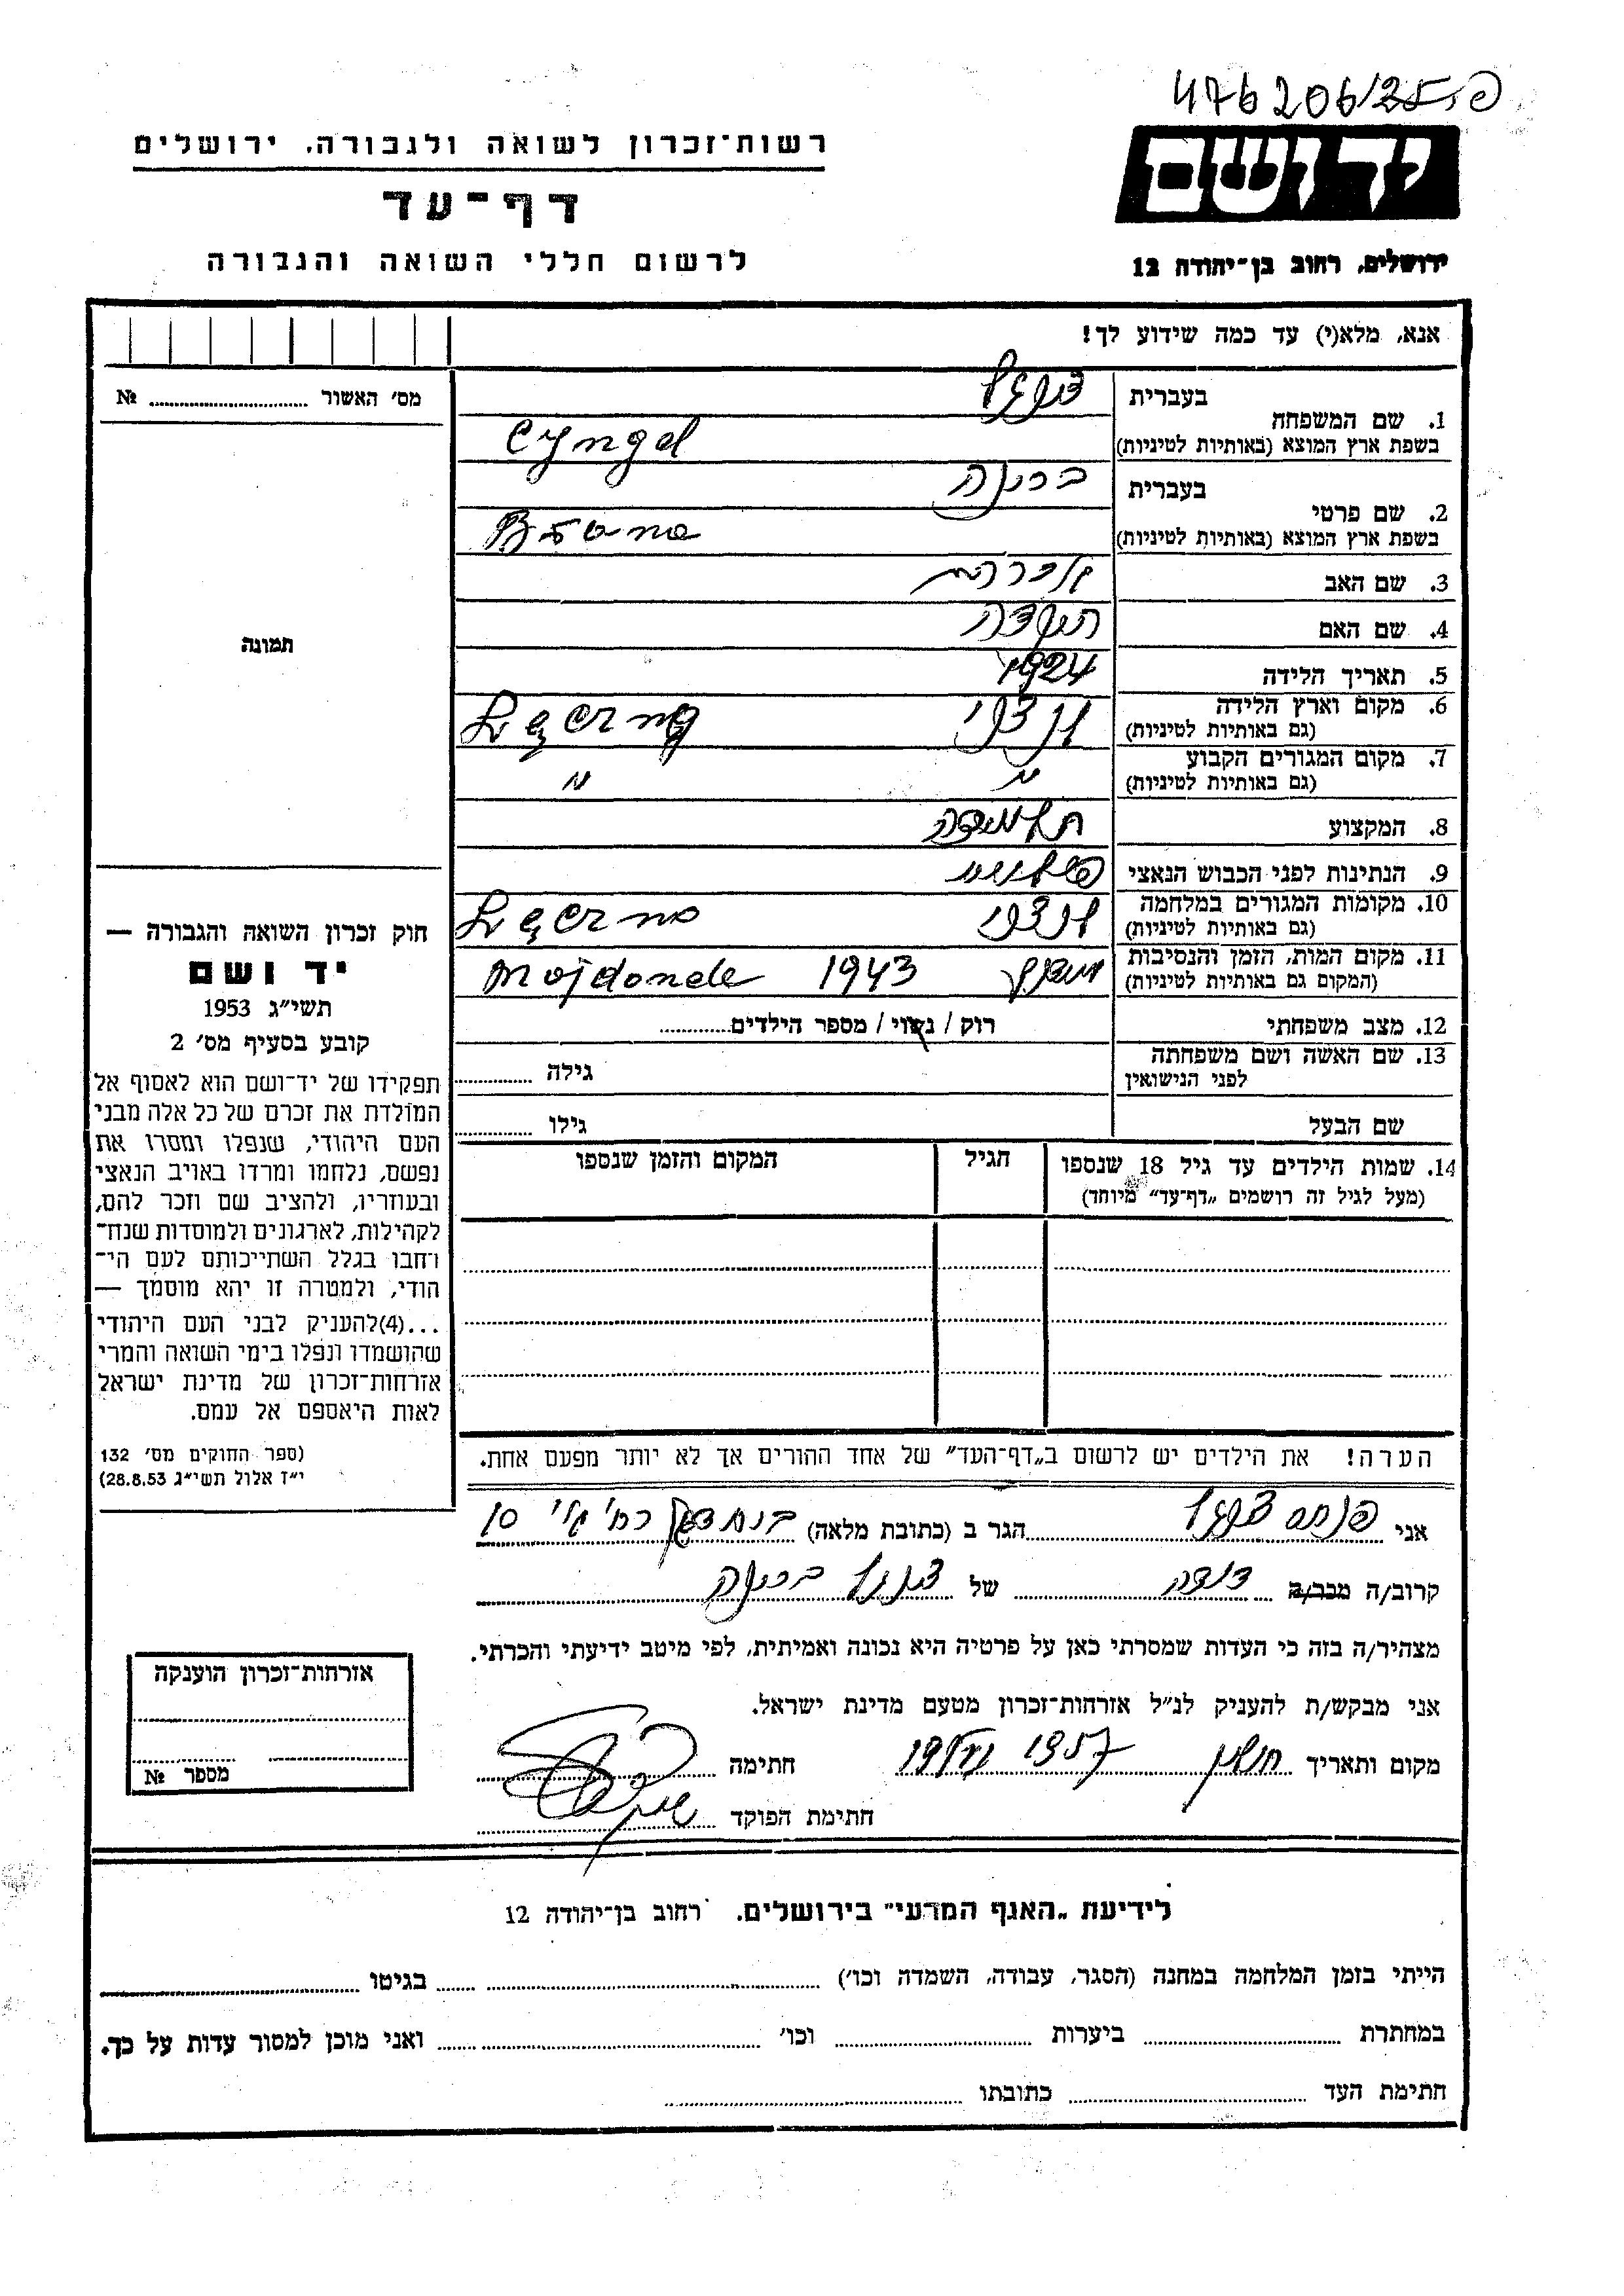 476206/25 פ.
רשות־זכרון לשואה ולגבורה, ירושלים
דף־עד
לרשום חללי השואה והגבורה
ידושם
ירושלים, רחוב בן־יהודה 12
אנא, מלא(י) עד כמה שידוע לך!
מס׳ האשור № ........
תמונה
1. שם המשפחה בעברית צינגל
בשפת ארץ המוצא (באותיות לטיניות) Cyngel
2. שם פרטי בעברית ברינה
בשפת ארץ המוצא (באותיות לטיניות)
3. שם האב אברהם
4. שם האם
5. תאריך הלידה 1924
6. מקום וארץ הלידה (גם באותיות לטיניות) לנצ׳נה Łęczna
7. מקום המגורים הקבוע (גם באותיות לטיניות) " "
8. המקצוע תלמידה
9. הנתינות לפני הכבוש הנאצי פולנית
10. מקומות המגורים במלחמה (גם באותיות לטיניות) Łęczna
11. מקום המות, הזמן והנסיבות (המקום גם באותיות לטיניות) מידנק 1943 Majdanek
12. מצב משפחתי רוק / נשוי / מספר הילדים........
13. שם האשה ושם משפחתה לפני הנישואין גילה ........
שם הבעל גילו ........
14. שמות הילדים עד גיל 18 שנספו הגיל המקום והזמן שנספו
(מעל לגיל זה רושמים „דף־עד״ מיוחד)
חוק זכרון השואה והגבורה —
יד ושם
תשי״ג 1953
קובע בסעיף מס׳ 2
תפקידו של יד־ושם הוא לאסוף אל
המולדת את זכרם של כל אלה מבני
העם היהודי, שנפלו ומסרו את
נפשם, נלחמו ומרדו באויב הנאצי
ובעוזריו, ולהציב שם וזכר להם,
לקהילות, לארגונים ולמוסדות שנח־
רחבו בגלל השתייכותם לעם הי־
הודי, ולמטרה זו יהא מוסמך —
...(4)להעניק לבני העם היהודי
שהושמדו ונפלו בימי השואה והמרי
אזרחות־זכרון של מדינת ישראל
לאות היאספם אל עמם.
(ספר החוקים מס׳ 132
י״ז אלול תשי״ג 28.8.53)
הערה! את הילדים יש לרשום ב„דף־העד״ של אחד ההורים אך לא יותר מפעם אחת.
אני פנחס צינגל הגר ב (כתובת מלאה) 10
קרוב/ה מכר/ה דודה של צינגל ברינה
מצהיר/ה בזה כי העדות שמסרתי כאן על פרטיה היא נכונה ואמיתית, לפי מיטב ידיעתי והכרתי.
אני מבקש/ת להעניק לנ״ל אזרחות־זכרון מטעם מדינת ישראל.
מקום ותאריך חולון 1957 חתימה
חתימת הפוקד
אזרחות־זכרון הוענקה
מספר №
לידיעת „האגף המדעי״ בירושלים. רחוב בן־יהודה 12
הייתי בזמן המלחמה במחנה (הסגר, עבודה, השמדה וכו׳) ........ בגיטו ........
במחתרת ........ ביערות ........ וכו׳ ........ ואני מוכן למסור עדות על כך.
חתימת העד ........ כתובתו ........